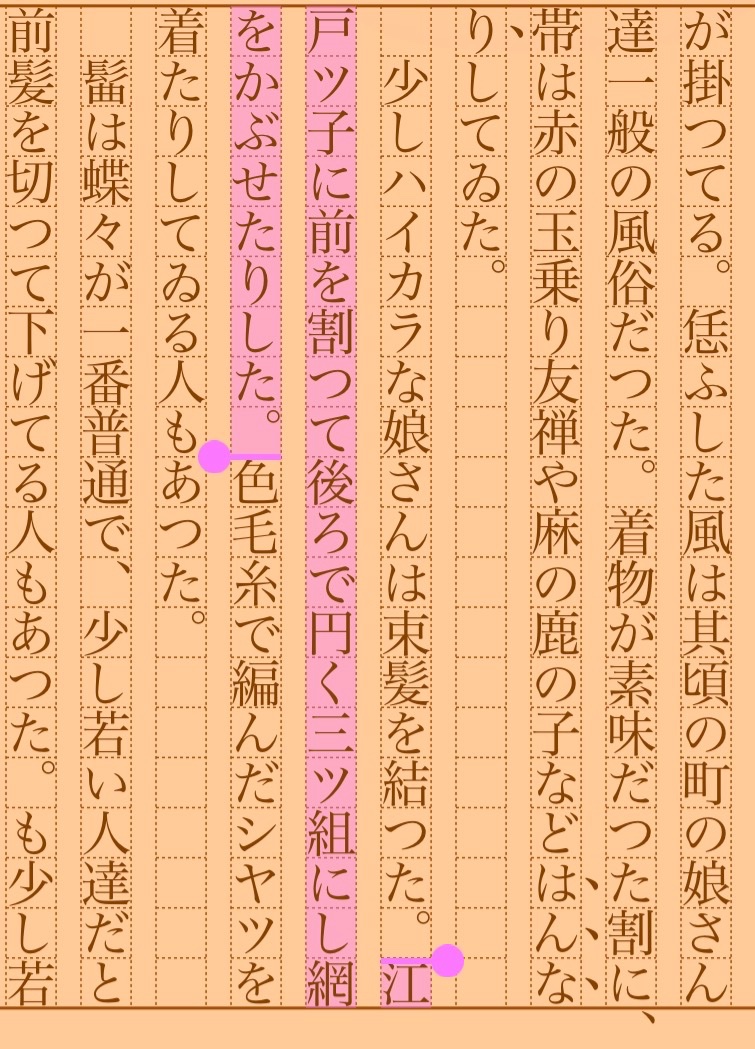 が掛つてる。恁ふした風は其頃の町の娘さん
達一般の風俗だつた。着物が素味だつた割に、
帯は赤の玉乗り友禅や麻の鹿の子などはんな、
りしてゐた。
少しハイカラな娘さんは束髪を結つた。江
戸ツ子に前を割つて後ろで円く三ツ組にし網
をかぶせたりした。色毛糸で編んだシヤツを
着たりしてゐる人もあつた。
髷は蝶々が一番普通で、少し若い人達だと
前髪を切つて下げてる人もあつた。も少し若